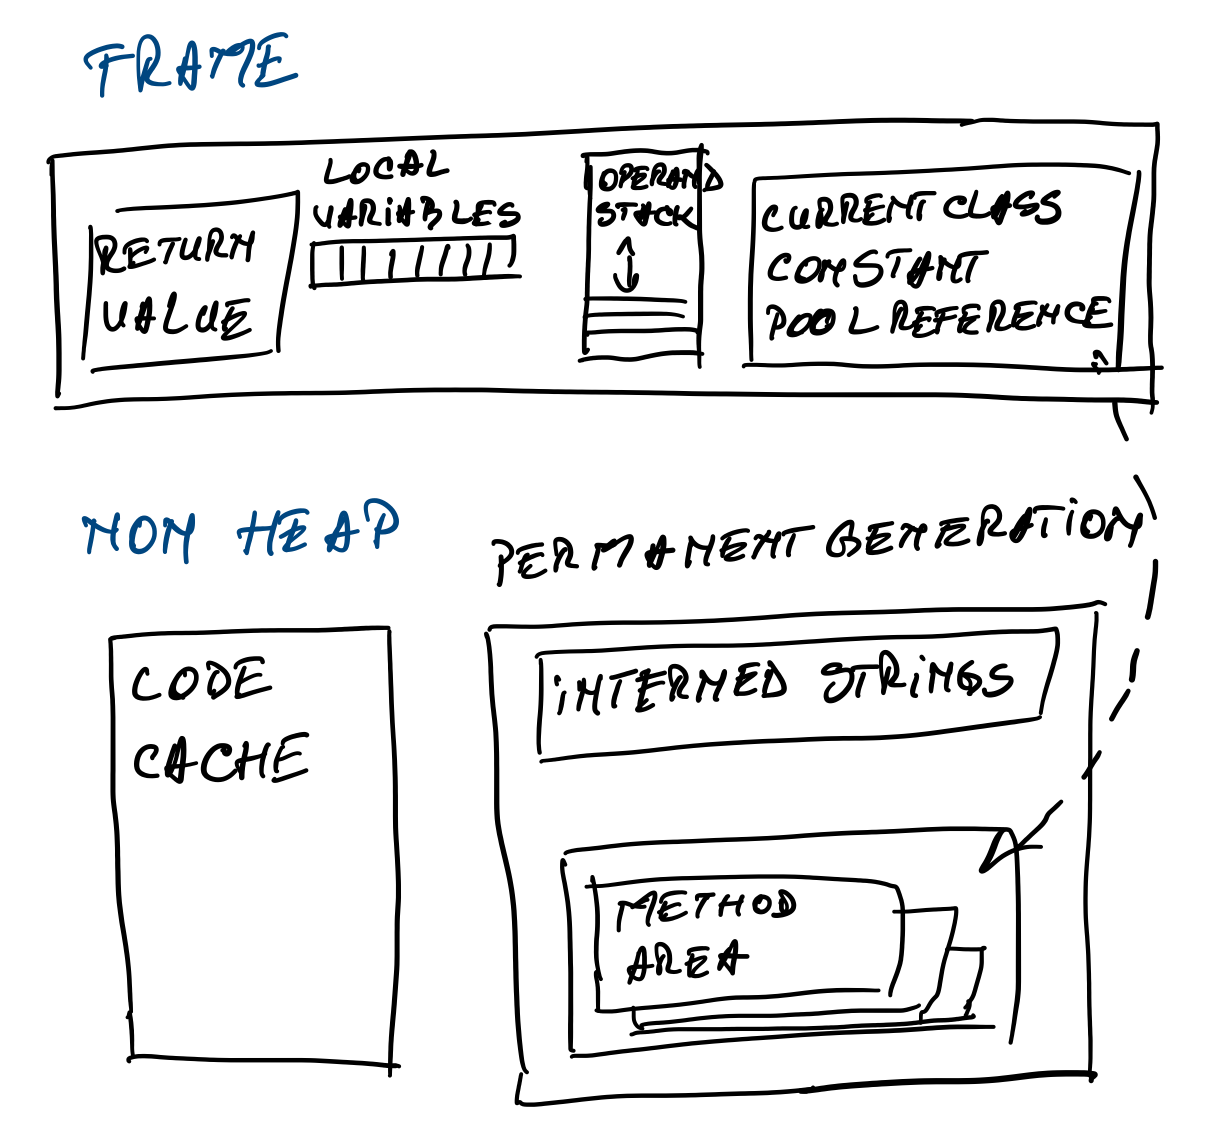 FRAME
RETURN
VALUE
LOCAL
VARiABLES
OPERAND
STACK
CURRENT CLASS
CONSTANT
POOL REFERENCE
NON HEAP
CODE
CACHE
PERMANENT GENERATiON
iNTERNED STRiNGS
METHOD
AREA